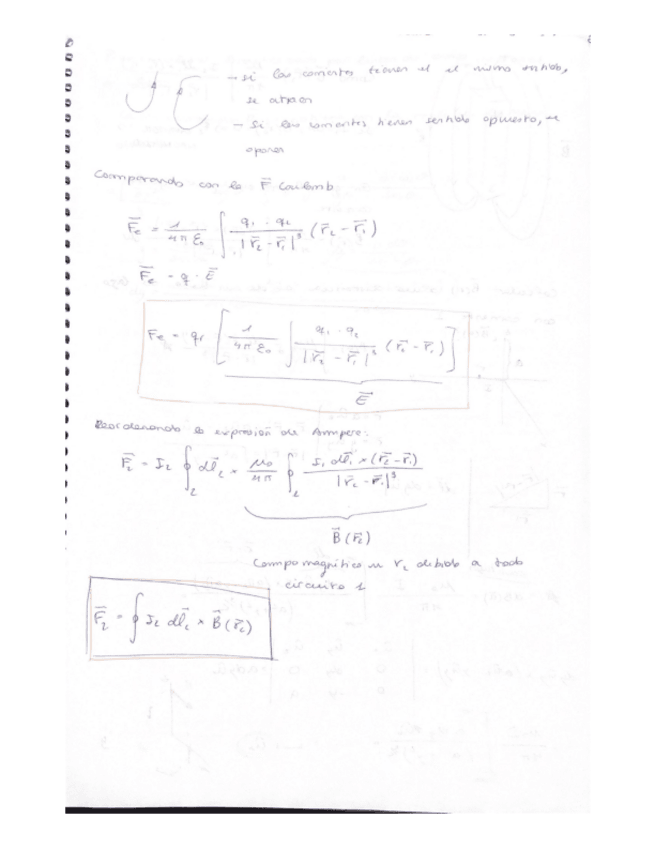 → si las corrientes tienen el el mismo sentido,
se atraen
→ Si las corrientes tienen sentido opuesto, se
oponen
Comparando con la F⃗ Coulomb
F⃗e = 1/(4πε₀) ∫ (q₁ · q₂)/|r⃗₂ - r⃗₁|³ (r⃗₂ - r⃗₁)
F⃗e = q · E⃗
Fe = q₁ [ 1/(4πε₀) ∫ (q₁ · q₂)/|r⃗₂ - r⃗₁|³ (r⃗₂ - r⃗₁) ]
E⃗
Reordenando la expresión de Ampere:
F⃗₂ = I₂ ∮₂ dl⃗₂ × μ₀/4π ∮₂ (I₁ dl⃗₁ × (r⃗₂ - r⃗₁))/|r⃗₂ - r⃗₁|³
B⃗(r⃗₂)
Campo magnético en r₂ debido a todo
circuito 1
F⃗₂ = ∮ I₂ dl⃗₂ × B⃗(r⃗₂)